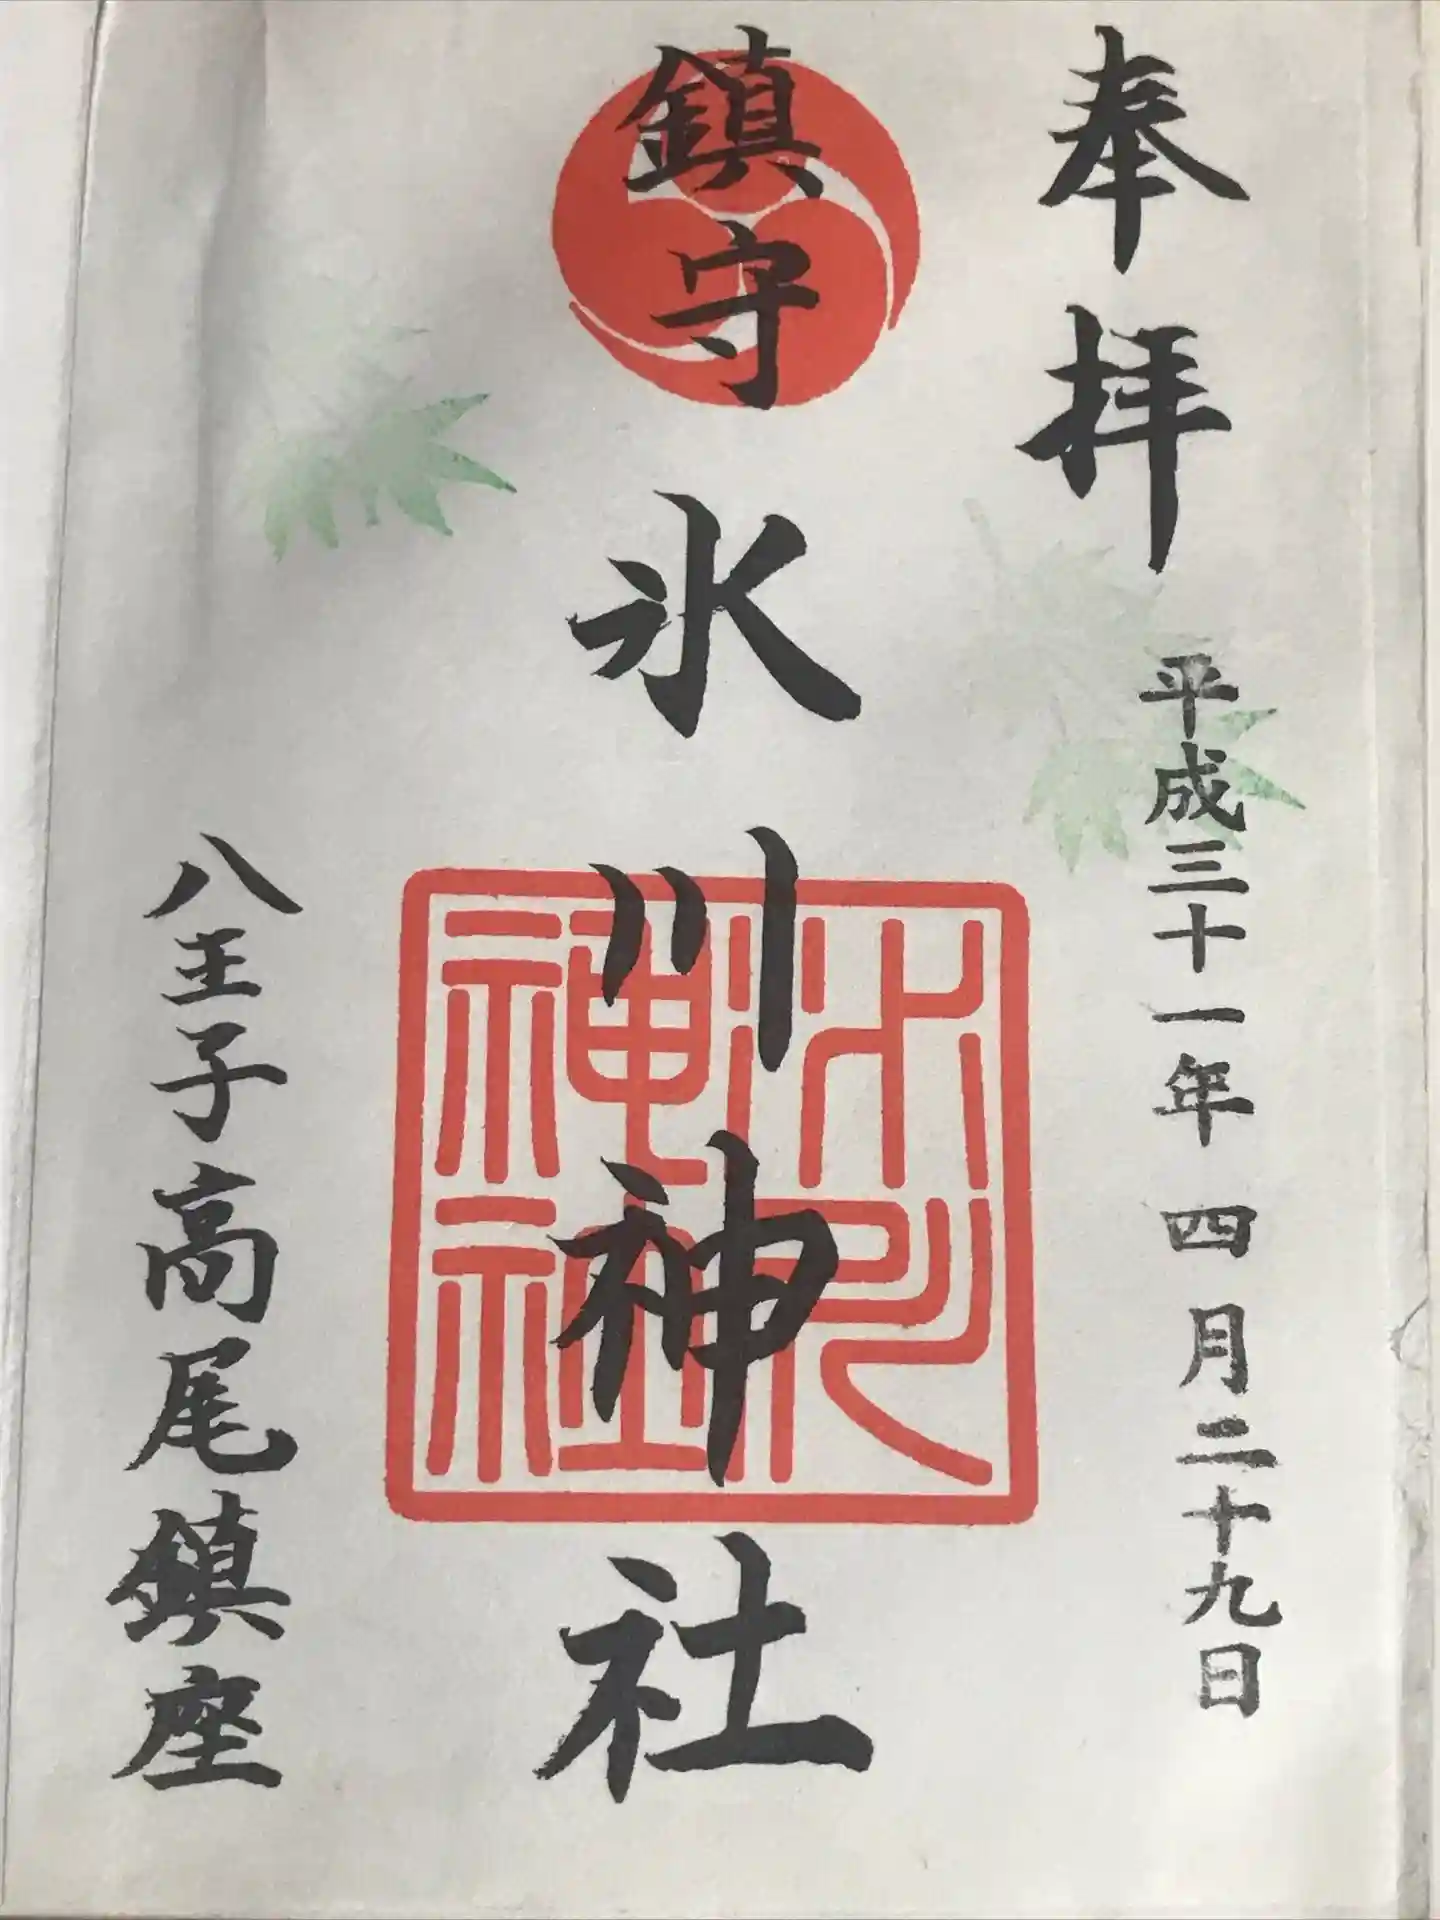 奉拝
平成三十一年 四月二十九日
鎮守 氷川神社
氷川神社
八王子高尾鎮座